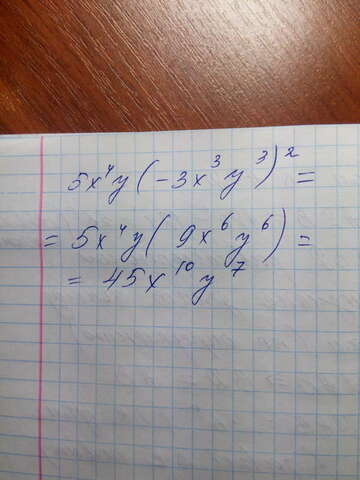 5x⁴y(-3x³y³)²=
=5x⁴y(9x⁶y⁶)=
=45x¹⁰y⁷